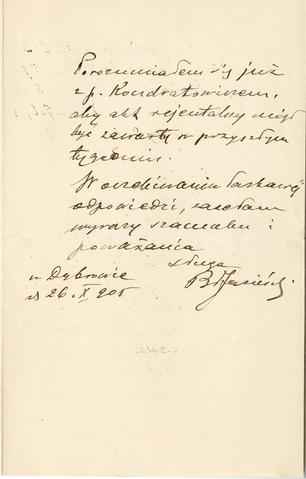 Porozumiałem się już
z p. Kondratowiczem,
aby akt rejentalny mógł
być zawarty w przyszłym
tygodniu.
W oczekiwaniu łaskawej
odpowiedzi, zasełam
wyrazy szacunku i
poważania
sługa
B Jasieński
w Dąbrowie
d 26. X 905